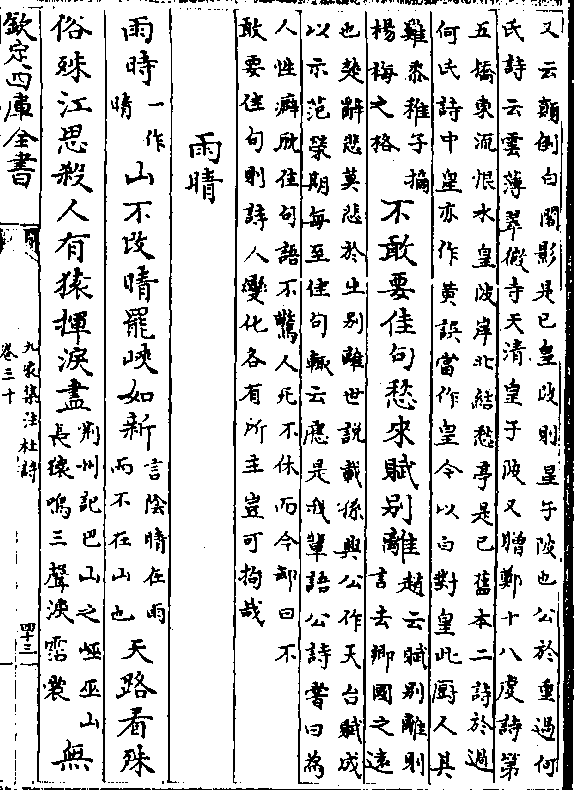 又云顛倒白閣影是已皇陂則皇子陂也公於重過何
氏詩云雲薄翠微寺天清皇子陂又贈鄭十八虔詩第
五橋東流恨水皇陂岸北結愁亭是已舊本二詩於過
何氏詩中皇亦作黄誤當作皇今以白對皇此厨人具
雞黍稚子摘
楊梅之格
不敢要佳句愁來賦别離
趙云賦别離則
言去鄉國之遠
也楚辭悲莫悲於生别離世說載孫興公作天台賦成
以示范榮期每至佳句輒云應是我輩語公詩嘗曰為
人性癖耽佳句語不驚人死不休而今却曰不
敢要佳句則詩人變化各有所主豈可拘哉
雨晴
雨時
一作
晴
山不改晴罷峽如新
言陰晴在雨
而不在山也
天路看殊
俗殊江思殺人有猿揮淚盡
荆州記巴山之峽巫山
長猿鳴三聲淚霑裳
無
欽定四庫全書
九家集注杜詩
卷三十
四十三